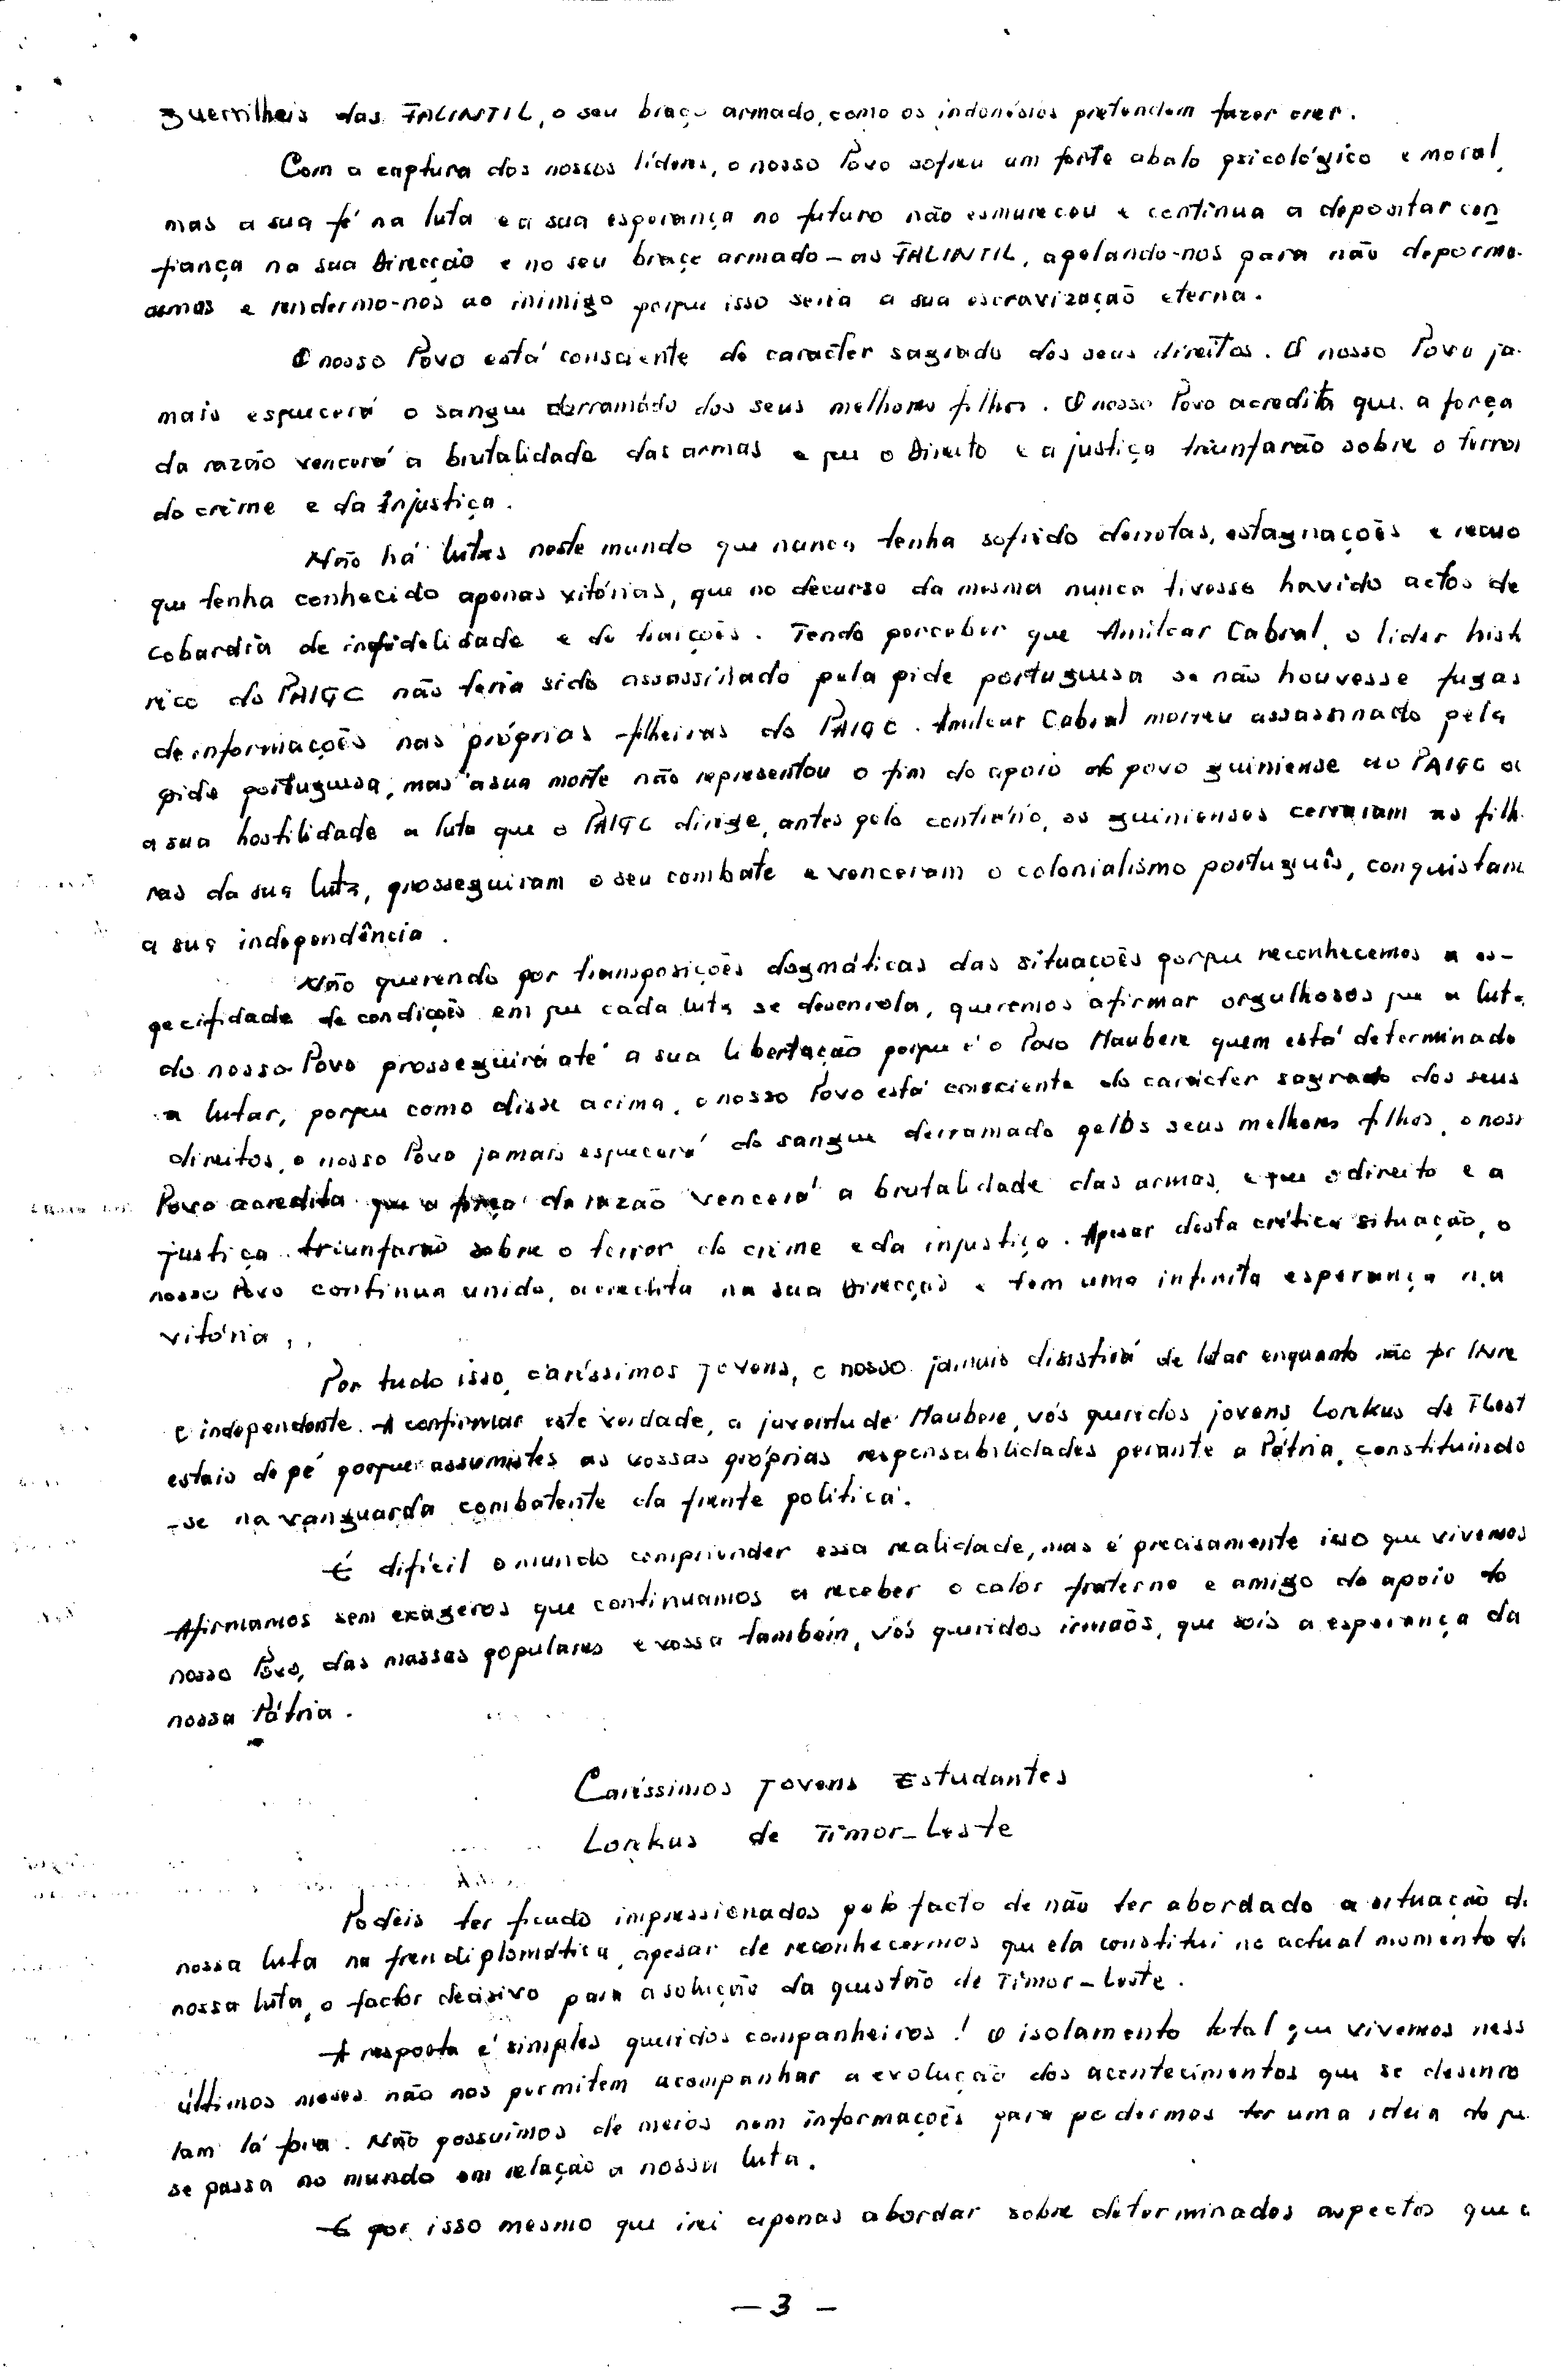 guerrilheis das FALINTIL, o seu braço armado, como os indonésios pretendem fazer crer.
Com a captura dos nossos líderes, o nosso Povo sofreu um forte abalo psicológico e moral,
mas a sua fé na luta e a sua esperança no futuro não esmureceu e continua a depositar con
fiança na sua Direcção e no seu braço armado - as FALINTIL, apelando-nos para não depormo-
armas e rendermo-nos ao inimigo porque isso seria a sua escravização eterna.
O nosso Povo está consciente do carácter sagrado dos seus direitos. O nosso Povo ja-
mais esquecerá o sangue derramádo dos seus melhores filhos. O nosso Povo acredita que a força
da razão vencerá a brutalidade das armas e que o Direito e a justiça triunfarão sobre o terror
do crime e da Injustiça.
Não há lutas neste mundo que nunca tenha sofrido derrotas, estagnações e recuo
que tenha conhecido apenas vitórias, que no decurso da mesma nunca tivesse havido actos de
cobardia de infidelidade e de traições. Tendo perceber que Amilcar Cabral, o lider histó
rico do PAIGC não teria sido assassinado pela pide portuguesa se não houvesse fugas
de informações nas próprias filheiras do PAIGC. Amilcar Cabral morreu assassinado pela
pide portuguesa, mas a sua morte não representou o fim do apoio do povo guiniense ao PAIGC ou
a sua hostilidade a luta que o PAIGC dirige, antes pelo contrário, os guinienses cerraram as filh
ras da sua luta, prosseguiram o seu combate e venceram o colonialismo português, conquistam
a sua independência.
Não querendo por transposições dogmáticas das situações porque reconhecemos a es-
pecifidade de condições em que cada luta se desenrola, queremos afirmar orgulhosos que a luta
do nosso Povo prosseguirá até a sua libertação porque é o Povo Maubere quem está determinado
a lutar, porque como disse acima, o nosso Povo está consciente do carácter sagrado dos seus
direitos, o nosso Povo jamais esquecerá do sangue derramado pelos seus melhores filhos, o noss
Povo acredita que a força da razão vencerá a brutalidade das armas, e que o direito e a
justiça triunfarão sobre o terror do crime e da injustiça. Apesar desta crítica situação, o
nosso Povo continua unido, acredita na sua Direcção e tem uma infinita esperança na
vitória,.
Por tudo isso, caríssimos jovens, o nosso jamais disistirá de lutar enquanto não for livre
e independente. A confirmar este verdade, a juventude Maubere, vós queridos jovens Lorikus de TLest
estais de pé porque assumistes as vossas próprias responsabilidades perante a Pátria, constituindo
-se na vanguarda combatente da frente politica.
É difícil o mundo compriender essa realidade, mas é precisamente isso que vivemos
Afirmamos sem exageros que continuamos a receber o calor fraterno e amigo do apoio do
nosso Povo, das massas populares e vossa também, vós queridos irmãos, que sois a esperança da
nossa Pátria.
Caríssimos Jovens Estudantes
Lorikus de Timor-Leste
Podeis ter ficado impressionados pelo facto de não ter abordado a situação da
nossa luta na fren diplomática, apesar de reconhecermos que ela constitui no actual momento da
nossa luta, o factor decisivo para a solução da questão de Timor-Leste.
A resposta é simples queridos companheiros! O isolamento total que vivemos ness
últimos meses não nos permitem acompanhar a evolução dos acontecimentos que se desenro
lam lá fora. Não possuimos de meios nem informações para podermos ter uma ideia do que
se passa no mundo em relação a nossa luta.
É por isso mesmo que irei apenas abordar sobre determinados aspectos que e
- 3 -